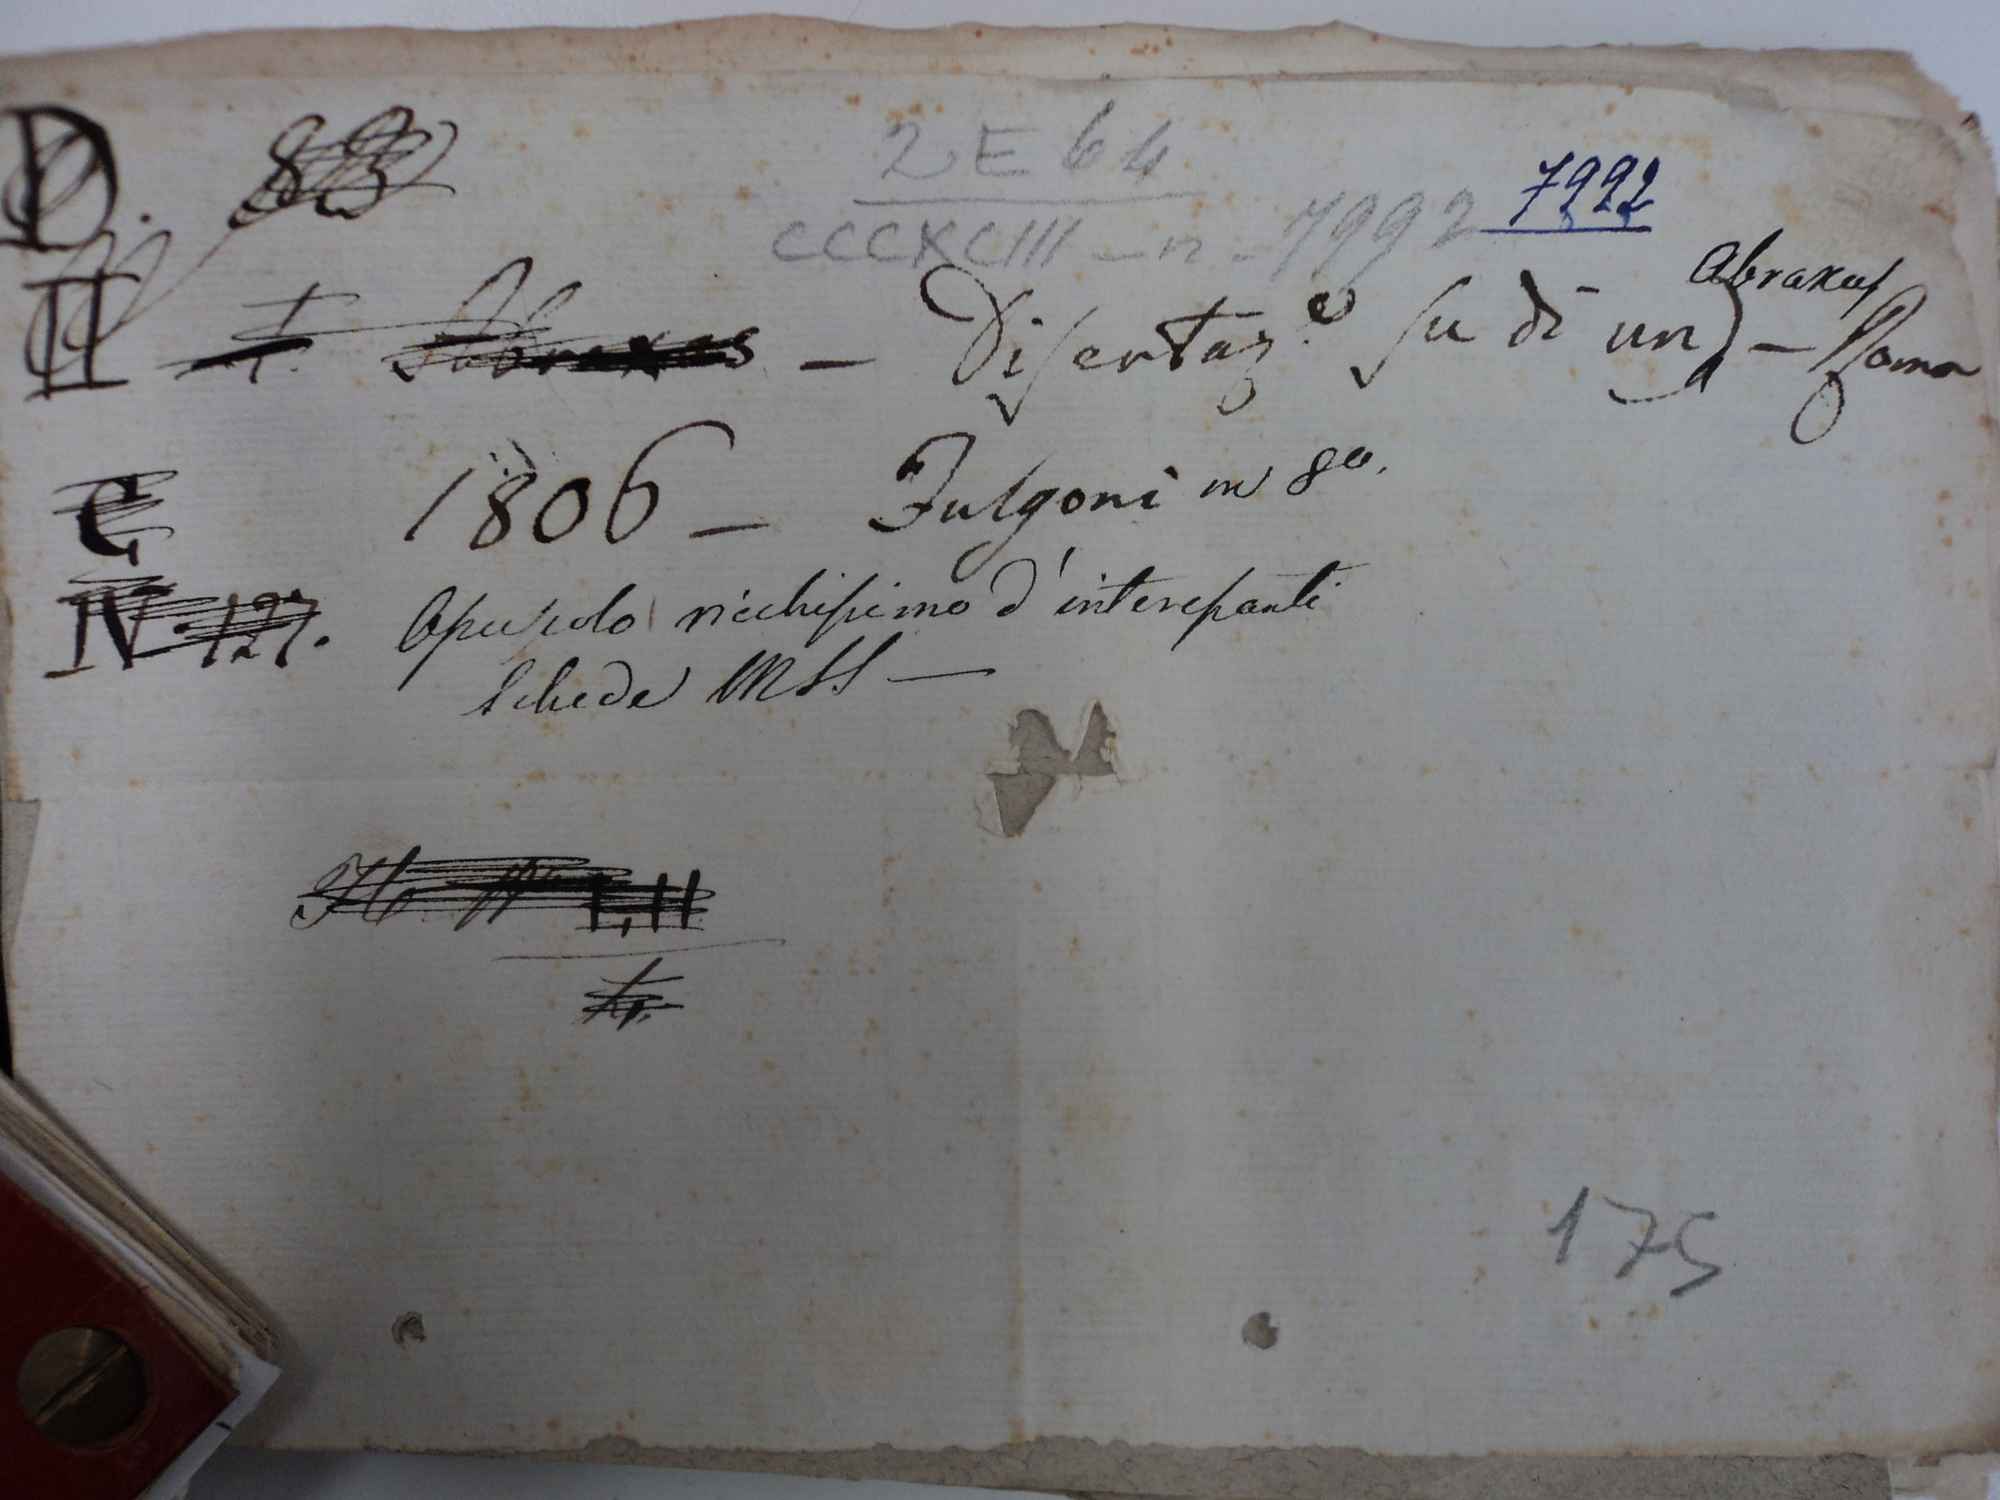 D. 83
2 E 64
CCCXCIII - n - 7992
7992
Abraxas
II T. Abraxas - Disertaz.e su di un - Roma
C, 1806 - Fulgoni in 8vo.
N. 127. Opuscolo ricchissimo d'interessanti
schede MSS -
I, II
175